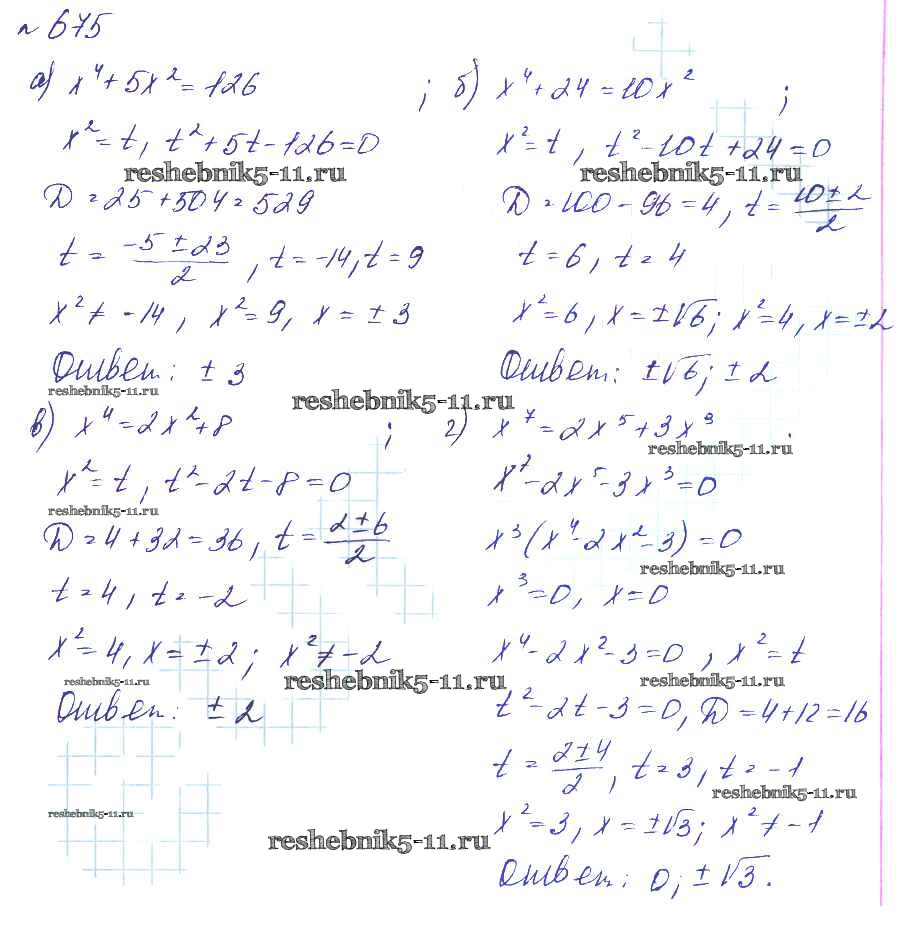 № 675
а) x⁴ + 5x² = 126 ;
x² = t, t² + 5t - 126 = 0
reshebnik5-11.ru
D = 25 + 504 = 529
t = (-5 ± 23)/2, t = -14, t = 9
x² ≠ -14, x² = 9, x = ± 3
Ответ: ± 3
reshebnik5-11.ru
б) x⁴ + 24 = 10x² ;
x² = t, t² - 10t + 24 = 0
reshebnik5-11.ru
D = 100 - 96 = 4, t = (10 ± 2)/2
t = 6, t = 4
x² = 6, x = ±√6; x² = 4, x = ± 2
Ответ: ±√6; ± 2
reshebnik5-11.ru
в) x⁴ = 2x² + 8 ;
x² = t, t² - 2t - 8 = 0
reshebnik5-11.ru
D = 4 + 32 = 36, t = (2 ± 6)/2
t = 4, t = -2
x² = 4, x = ± 2; x² ≠ -2
reshebnik5-11.ru
reshebnik5-11.ru
Ответ: ± 2
reshebnik5-11.ru
reshebnik5-11.ru
г) x⁷ = 2x⁵ + 3x³ .
reshebnik5-11.ru
x⁷ - 2x⁵ - 3x³ = 0
x³(x⁴ - 2x² - 3) = 0
reshebnik5-11.ru
x³ = 0, x = 0
x⁴ - 2x² - 3 = 0, x² = t
reshebnik5-11.ru
t² - 2t - 3 = 0, D = 4 + 12 = 16
t = (2 ± 4)/2, t = 3, t = -1
reshebnik5-11.ru
x² = 3, x = ±√3; x² ≠ -1
Ответ: 0; ±√3.